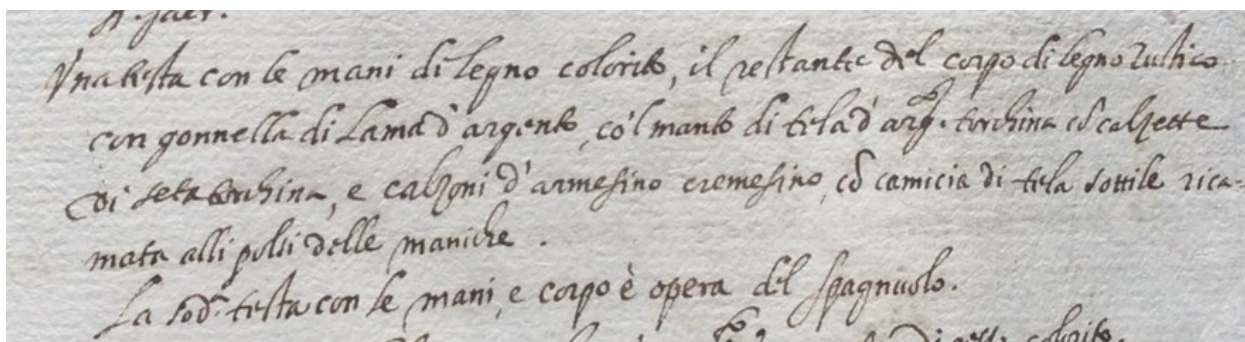 Una testa con le mani di legno colorito, il restante del corpo di legno rustico
con gonnella di Lama d'argento, co'l manto di tela d'arg.to torchina cō calzette
di seta torchina, e calzoni d'armesino cremesino, cō camicia di tela sottile rica=
mata alli polsi delle maniche.
La sod.ta testa con le mani, e corpo è opera del Spagnuolo.